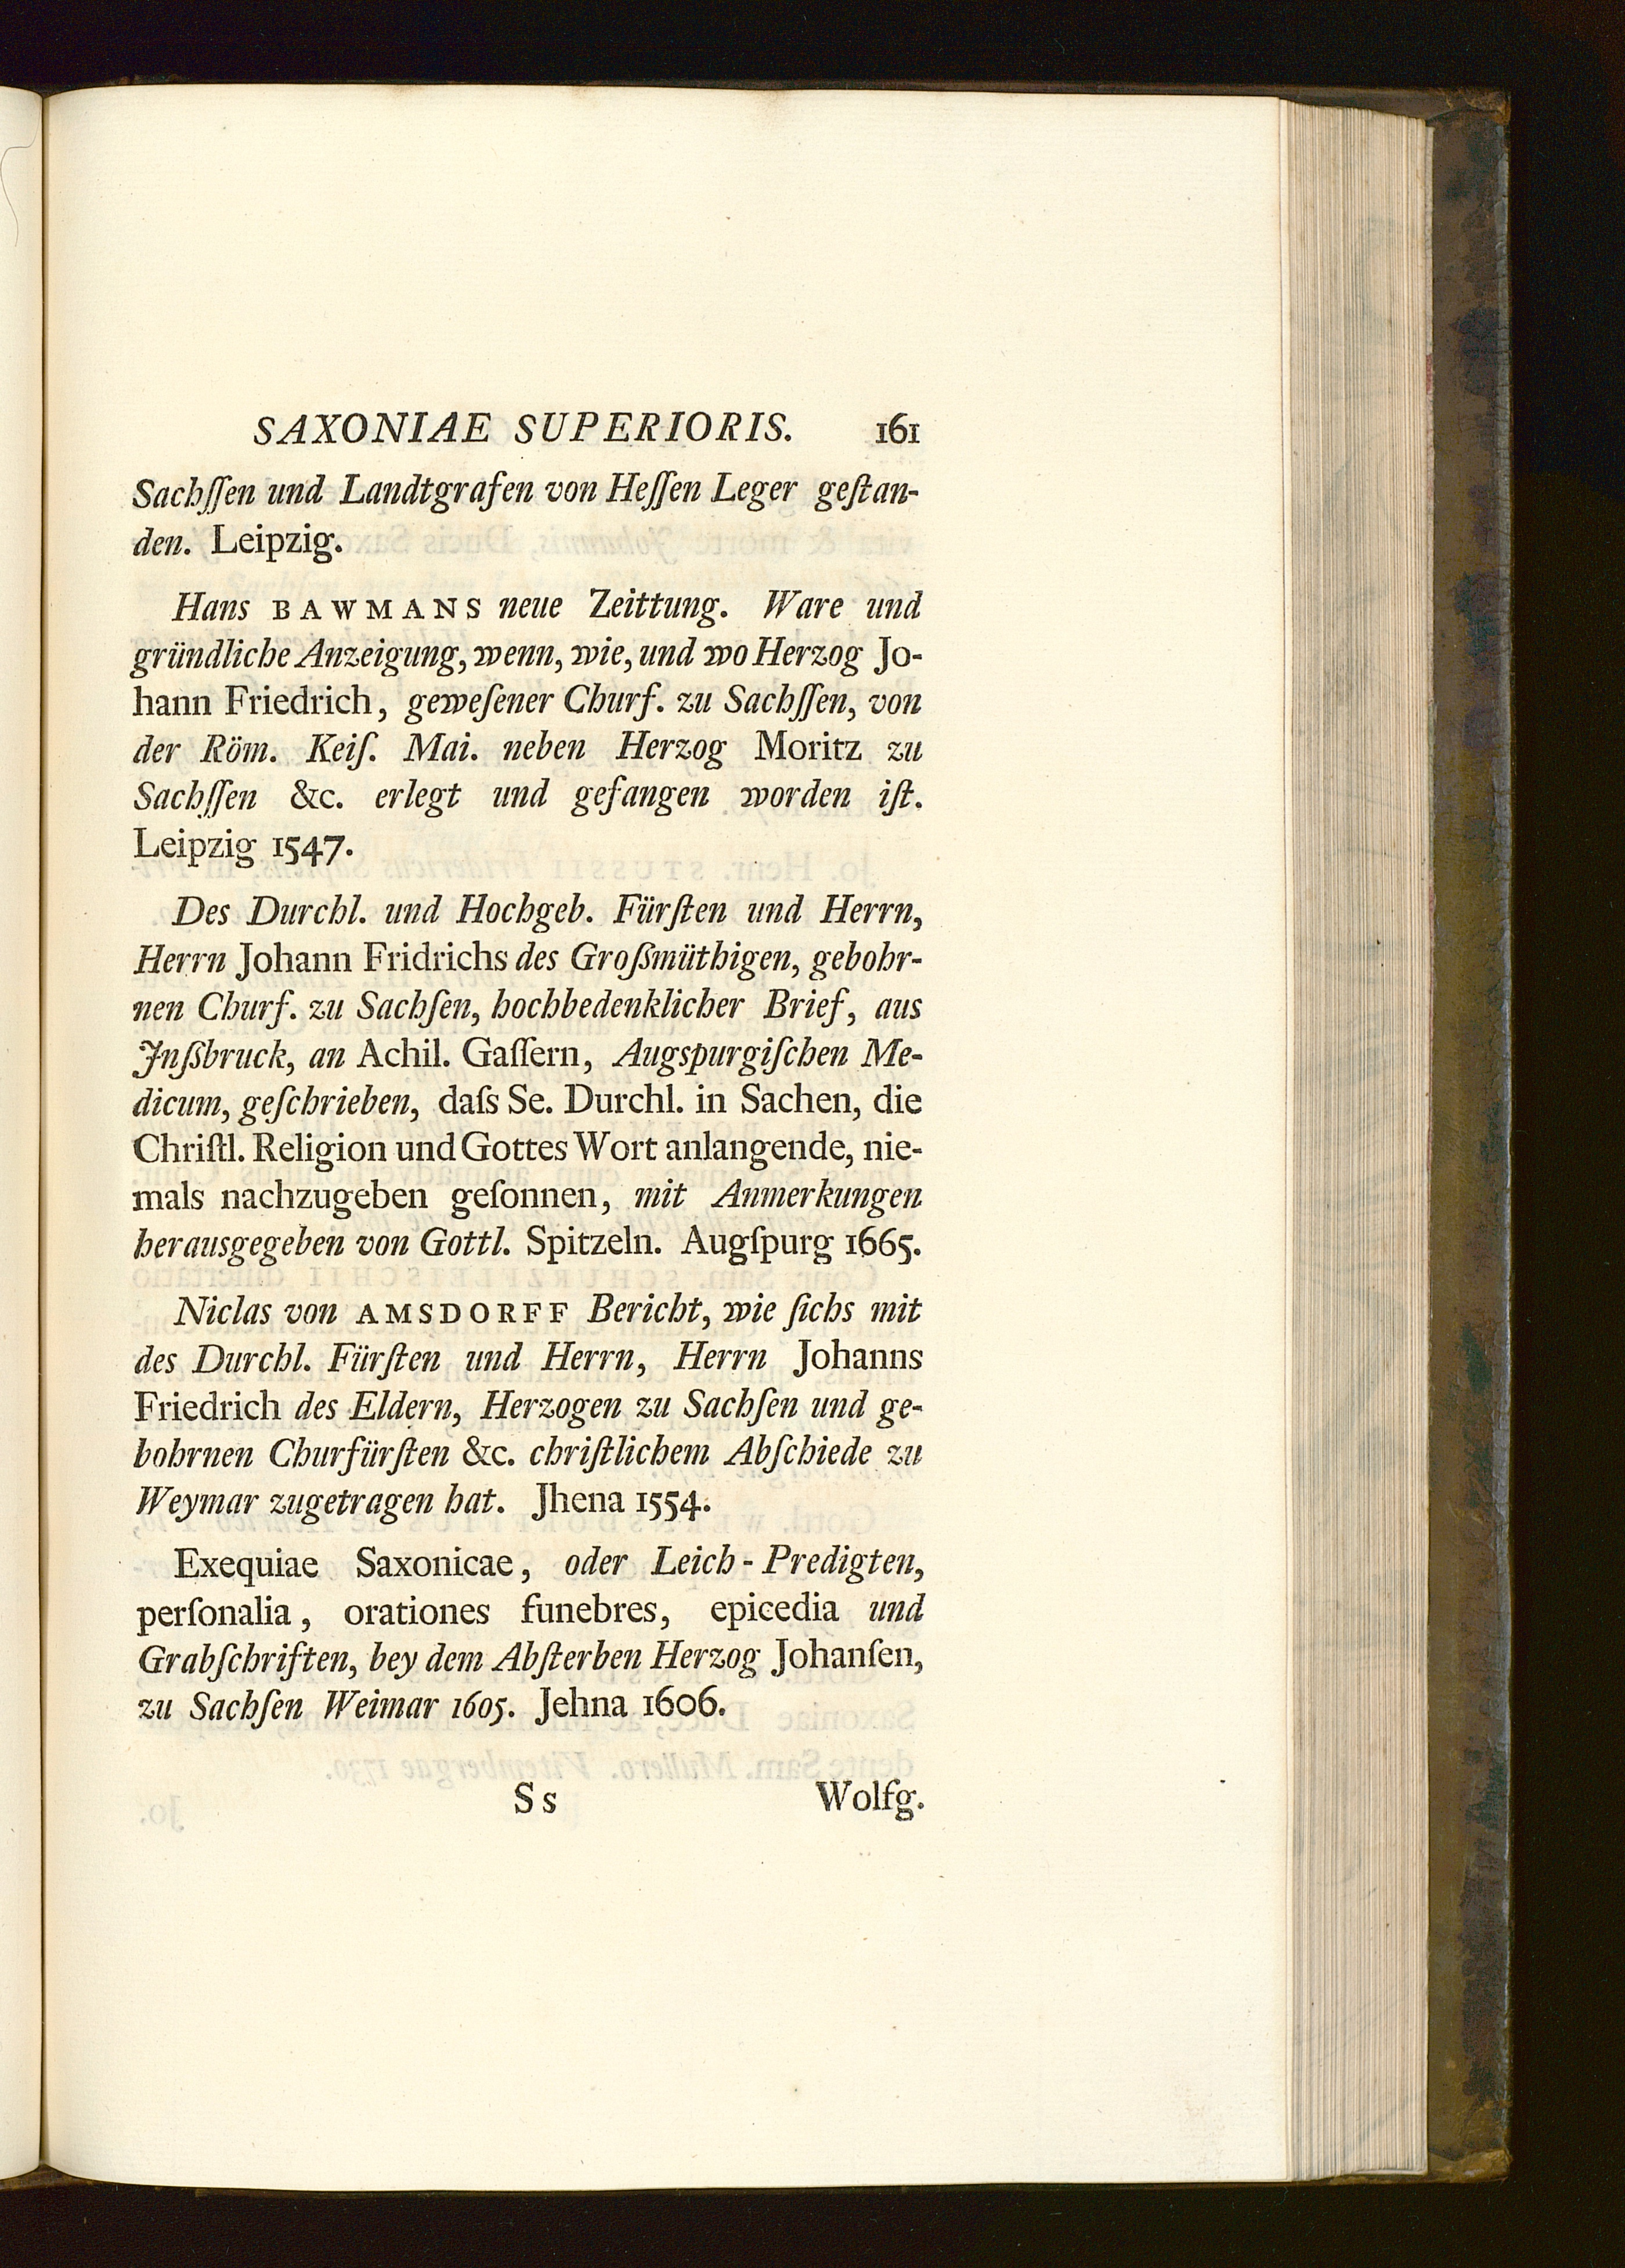 SAXONIAE SUPERIORIS. 161
Sachſſen und Landtgrafen von Heſſen Leger geſtan-
den. Leipzig.
Hans BAWMANS neue Zeittung. Ware und
gründliche Anzeigung, wenn, wie, und wo Herzog Jo-
hann Friedrich, geweſener Churf. zu Sachſſen, von
der Röm. Keiſ. Mai. neben Herzog Moritz zu
Sachſſen &c. erlegt und gefangen worden iſt.
Leipzig 1547.
Des Durchl. und Hochgeb. Fürſten und Herrn,
Herrn Johann Fridrichs des Großmüthigen, gebohr-
nen Churf. zu Sachſen, hochbedenklicher Brief, aus
Jnßbruck, an Achil. Gaſſern, Augspurgiſchen Me-
dicum, geſchrieben, daſs Se. Durchl. in Sachen, die
Chriſtl. Religion und Gottes Wort anlangende, nie-
mals nachzugeben geſonnen, mit Anmerkungen
herausgegeben von Gottl. Spitzeln. Augſpurg 1665.
Niclas von AMSDORFF Bericht, wie ſichs mit
des Durchl. Fürſten und Herrn, Herrn Johanns
Friedrich des Eldern, Herzogen zu Sachſen und ge-
bohrnen Churfürſten &c. chriſtlichem Abſchiede zu
Weymar zugetragen hat. Jhena 1554.
Exequiae Saxonicae, oder Leich-Predigten,
perſonalia, orationes funebres, epicedia und
Grabſchriften, bey dem Abſterben Herzog Johanſen,
zu Sachſen Weimar 1605. Jehna 1606.
Ss Wolfg.